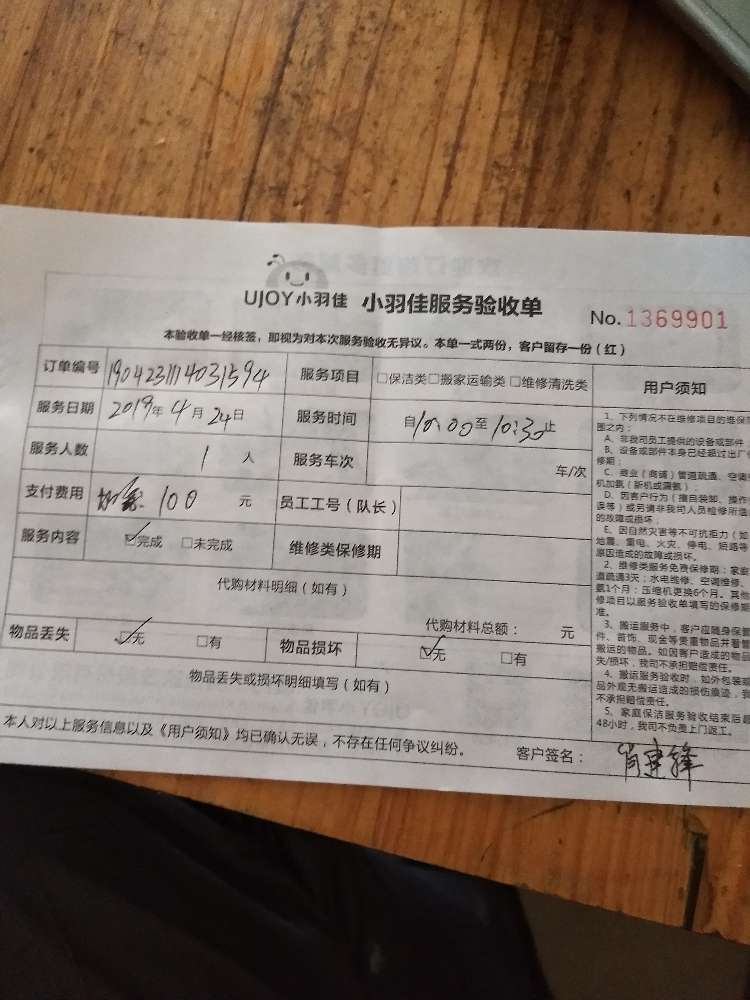 UJOY小羽佳 小羽佳服务验收单 No.1369901
本验收单一经核签，即视为对本次服务验收无异议。本单一式两份，客户留存一份（红）
订单编号 1904231114031594 服务项目 □保洁类□搬家运输类□维修清洗类
服务日期 2019年4月24日 服务时间 自10:00至10:30止
服务人数 1人 服务车次 车/次
支付费用 100元 员工工号（队长）
服务内容 ☑完成 □未完成 维修类保修期
代购材料明细（如有）
代购材料总额： 元
物品丢失 ☑无 □有 物品损坏 ☑无 □有
物品丢失或损坏明细填写（如有）
本人对以上服务信息以及《用户须知》均已确认无误，不存在任何争议纠纷。 客户签名： 肖建锋
用户须知
1、下列情况不在维修项目的维保范
围之内：
A、非我司员工提供的设备或部件
B、设备或部件本身已经超过出厂
修期；
C、商业（商铺）管道疏通、空调
机加氨（新机或漏氨）；
D、因客户行为（擅自装卸、操作
误等）或另请非我司人员检修所造
的故障或损坏；
E、因自然灾害等不可抗拒力（如
地震、雷电、火灾、停电、短路等
原因造成的故障或损坏。
2、维修类服务免费保修期：家庭
道疏通3天；水电维修、空调维修、
氨1个月；压缩机更换6个月。其他
修项目以服务验收单填写的保修期
准。
3、搬运服务中，客户应随身保管
件、首饰、现金等贵重物品并看管
搬运的物品。如因客户造成的物品
失/损坏，我司不承担赔偿责任。
4、搬运服务验收时，如外包装或
品外观无搬运造成的损伤痕迹，我
不承担赔偿责任。
5、家庭保洁服务验收结束后超
48小时，我司不负责上门返工。